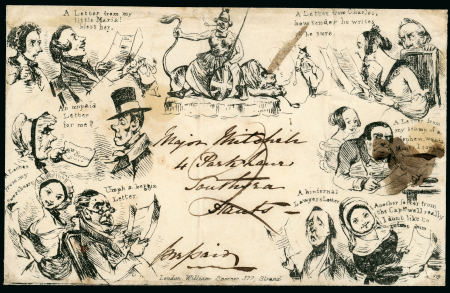 A Letter from my
little Maria!
bless her.
A Letter from Charles,
how tender he writes
to be sure.
An unpaid
Letter
for me?
A Letter from
my scamp of a
A Letter
from my
Umph a beggin
Letter.
Major Mitchell
4 Park Lane
Southsea
Hants
Prepaid
A hinfernal
Lawyers Letter
Another letter from
the Capt well really
I dont like to
London, William Spooner, 377, Strand.